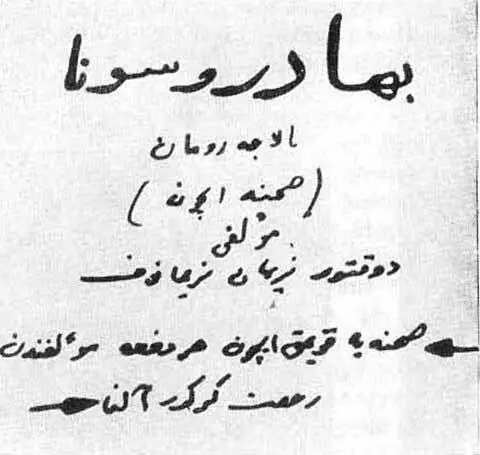 بهادر و سونا
بالاجه رومان
(صحنه ایچون)
مؤلفی
دوقتور نریمان نریمانوف
صحنه یه قویمق ایچون هر دفعه مؤلفندن
رخصت کرکدر آلنا